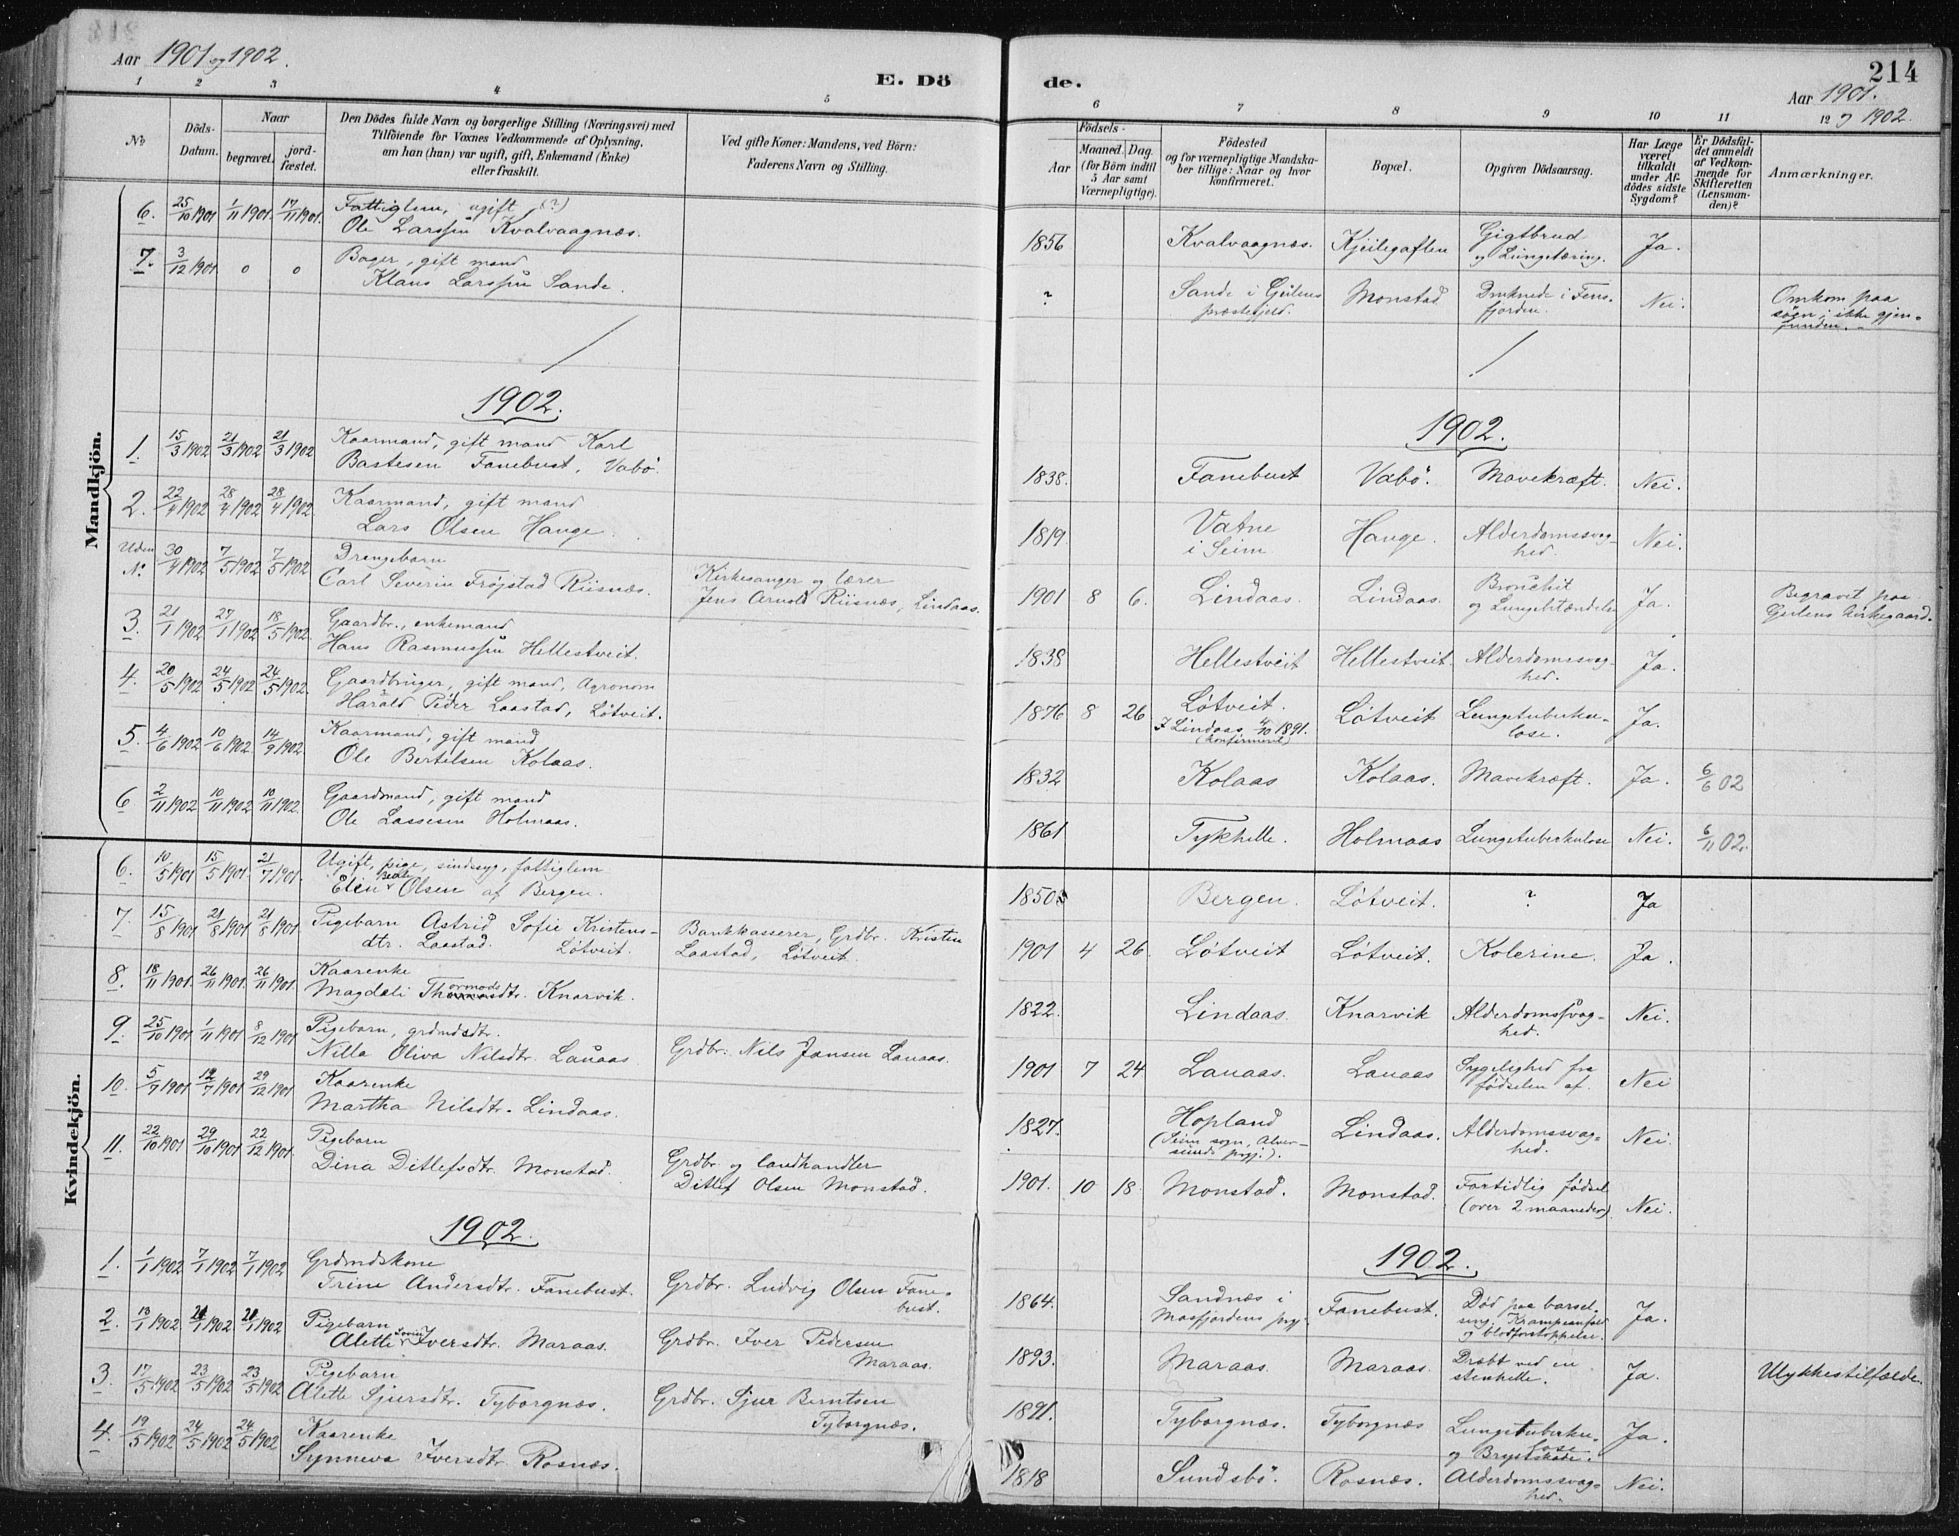 Aar 1901 og 1902.
E. Dö
de.
214
Aar 1901.
og 1902.
1 2 3 4 5 6 7 8 9 10 11 12
No
Döds-Datum.
Naar
begravet.
jord-fæstet.
Den Dödes fulde Navn og borgerlige Stilling (Næringsvei) med
Tilföiende for Voxnes Vedkommende af Oplysning,
om han (hun) var ugift, gift, Enkemand (Enke)
eller fraskilt.
Ved gifte Koner: Mandens, ved Börn:
Faderens Navn og Stilling.
Födsels-
Aar
Maaned.
Dag.
(for Börn indtil
5 Aar samt
Værnepligtige).
Födested
og for værnepligtige Mandska-
ber tillige: Naar og hvor
konfirmeret.
Bopæl.
Opgiven Dödsaarsag.
Har Læge
været
tilkaldt
under Af-
dödes sidste
Sygdom?
Er Dödsfal-
det anmeldt
af Vedkom-
mende for
Skifteretten
(Lensman-
den)?
Anmærkninger.
Mandkjön.
6. 25/10 1901 1/11 1901. 17/11 1901. Fattiglem, ugift (?)
Ole Larssen Kvalvaagnæs.
1856 Kvalvaagnæs. Kjeilegaflen Gigtbrud
og Lungetæring. Ja.
7. 3/12 1901 o o Bager, gift mand
Klaus Larssen Sande.
? Sande i Gulens
præstegjeld. Monstad Druknede i Fens-
fjorden. Nei. Omkom paa
søen; ikke gjen-
funden.
1902.
1902.
1. 15/3 1902 21/3 1902 21/3 1902 Kaarmand, gift mand Karl
Bastesen Fanebust, Vabö.
1838. Fanebust Vabö. Mavekræft. Nei.
2. 22/4 1902 28/4 1902 28/4 1902. Kaarmand, gift mand
Lars Olsen Hauge.
1819. Vatne
i Seim Hauge. Alderdomssvag-
hed. Nei.
Uden
No 30/4 1902 7/5 1902 7/5 1902 Drengebarn
Carl Severin Frøystad Riisnæs.
Kirkesanger og lærer
Jens Arnold Riisnæs, Lindaas.
1901 8 6. Lindaas. Lindaas. Bronchit
og Lungebetændelse Ja. Begravet paa
Gulens kirkegaard.
3. 21/1 1902 27/1 1902 18/5 1902. Gaardbr., enkemand
Hans Rasmussen Hellestveit.
1838 Hellestveit Hellestveit. Alderdomssvag-
hed. Ja.
4. 20/5 1902 24/5 1902 24/5 1902. Gaardbruger, gift mand, Agronom
Harald Peder Laastad, Lötveit.
1876 8 26 Lötveit.
I Lindaas 4/10 1891.
(konfirmeret) Lötveit Lungetuberku-
lose. Ja.
5. 4/6 1902 10/6 1902. 14/9 1902 Kaarmand, gift mand
Ole Bertelsen Kolaas.
1832 Kolaas Kolaas. Mavekræft. Ja. 6/6 02
6 2/11 1902 10/11 1902 10/11 1902. Gaardmand, gift mand
Ole Lassesen Holmaas.
1861 Tykhelle. Holmaas Lungetuberkulose Nei. 6/11 02.
Kvindekjön.
6. 10/5 1901 15/5 1901. 21/7 1901. Ugift, pige, sindssyg, fattiglem
Elen Beate Olsen af Bergen.
1850 Bergen. Lötveit. ? Ja
7. 15/8 1901 21/8 1901 21/8 1901 Pigebarn Astrid Sofie Kristens-
dtr. Laastad. Lötveit.
Bankkasserer, Grdbr. Kristen
Laastad, Lötveit.
1901 4 26. Lötveit Lötveit. Kolerine. Ja.
8. 18/11 1901. 26/11 1901. 26/11 1901. Kaarenke
Magdeli Thormodsdtr. Knarvik.
1822. Lindaas. Knarvik Alderdomssvag-
hed. Nei.
9. 25/10 1901 1/11 1901. 8/12 1901 Pigebarn, grdmdsdtr.
Nilla Oliva Nilsdtr. Lauaas
Grdbr. Nils Jansen Lauaas.
1901 7 24 Lauaas. Lauaas Sygelighed fra
fødselen af. Nei
10. 5/7 1901 12/7 1901 29/12 1901 Kaarenke
Martha Nilsdtr. Lindaas.
1827. Hopland
(Seim sogn, Alver-
sunds prgj.). Lindaas. Alderdomssvag-
hed. Nei.
11. 22/10 1901 29/10 1901 22/12 1901. Pigebarn
Dina Ditlefsdtr. Monstad.
Grdbr. og landhandler
Ditlef Olsen Monstad.
1901. 10 18. Monstad. Monstad. Fortidlig födsel
(over 2 maaneder). Nei.
1902.
1902.
1. 1/1 1902 7/1 1902 7/1 1902 Grdmdskone
Trine Andersdtr. Fanebust.
Grdbr. Ludvig Olsen Fane-
bust.
1864. Sandnæs i
Masfjordens prgj. Fanebust. Død paa barsel-
seng. Krampeanfald
og blodforstoppelse. Ja.
2. 13/1 1902 21/1 1902 21/1 1902 Pigebarn
Alette Iversdtr. Maraas.
Grdbr. Iver Pedersen
Maraas.
1893. Maraas. Maraas. Dræbt ved en
stenhelle. Ja. Ulykkestilfælde.
3. 17/5 1902 23/5 1902 23/5 1902. Pigebarn
Alette Sjursdtr. Tyborgnæs.
Grdbr. Sjur Berntsen
Tyborgnæs.
1891. Tyborgnæs. Tyborgnæs Lungetuberku-
lose
og Brystskade. Ja.
4. 19/5 1902 24/5 1902 24/5 1902 Kaarenke
Synneva Iversdtr. Rosnæs.
1818 Sundsbö. Rosnæs. Alderdomssvag-
hed. Nei.